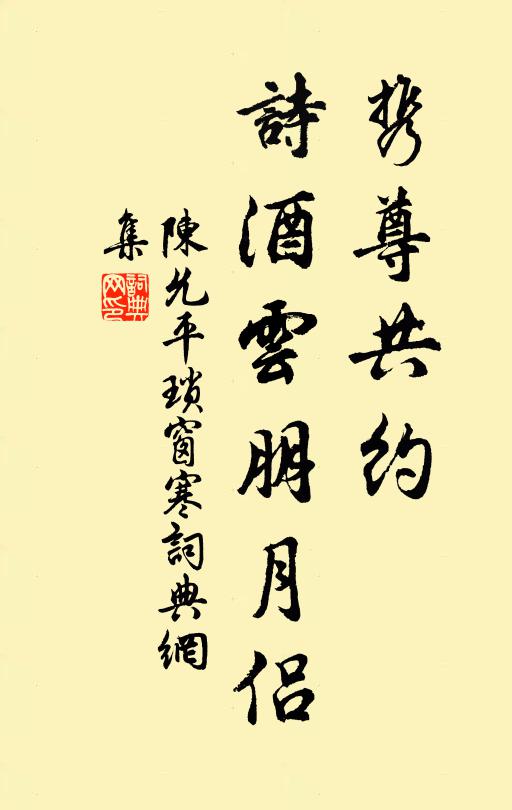 携尊共约
詩酒雲朋月侣
陳允平瑣窗寒詞典網
集
詞典
网印